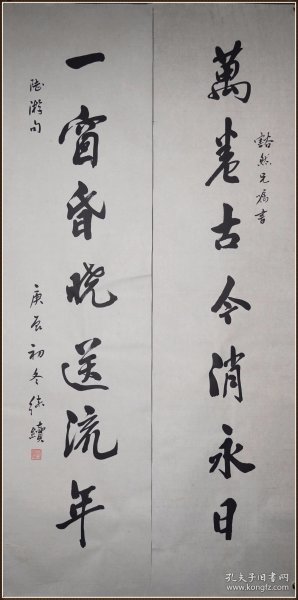 豁然兄書
萬卷古今消永日
一窗昏晓送流年
陸游句
庚辰初冬徐續
孔夫子旧书网
www.kongfz.com